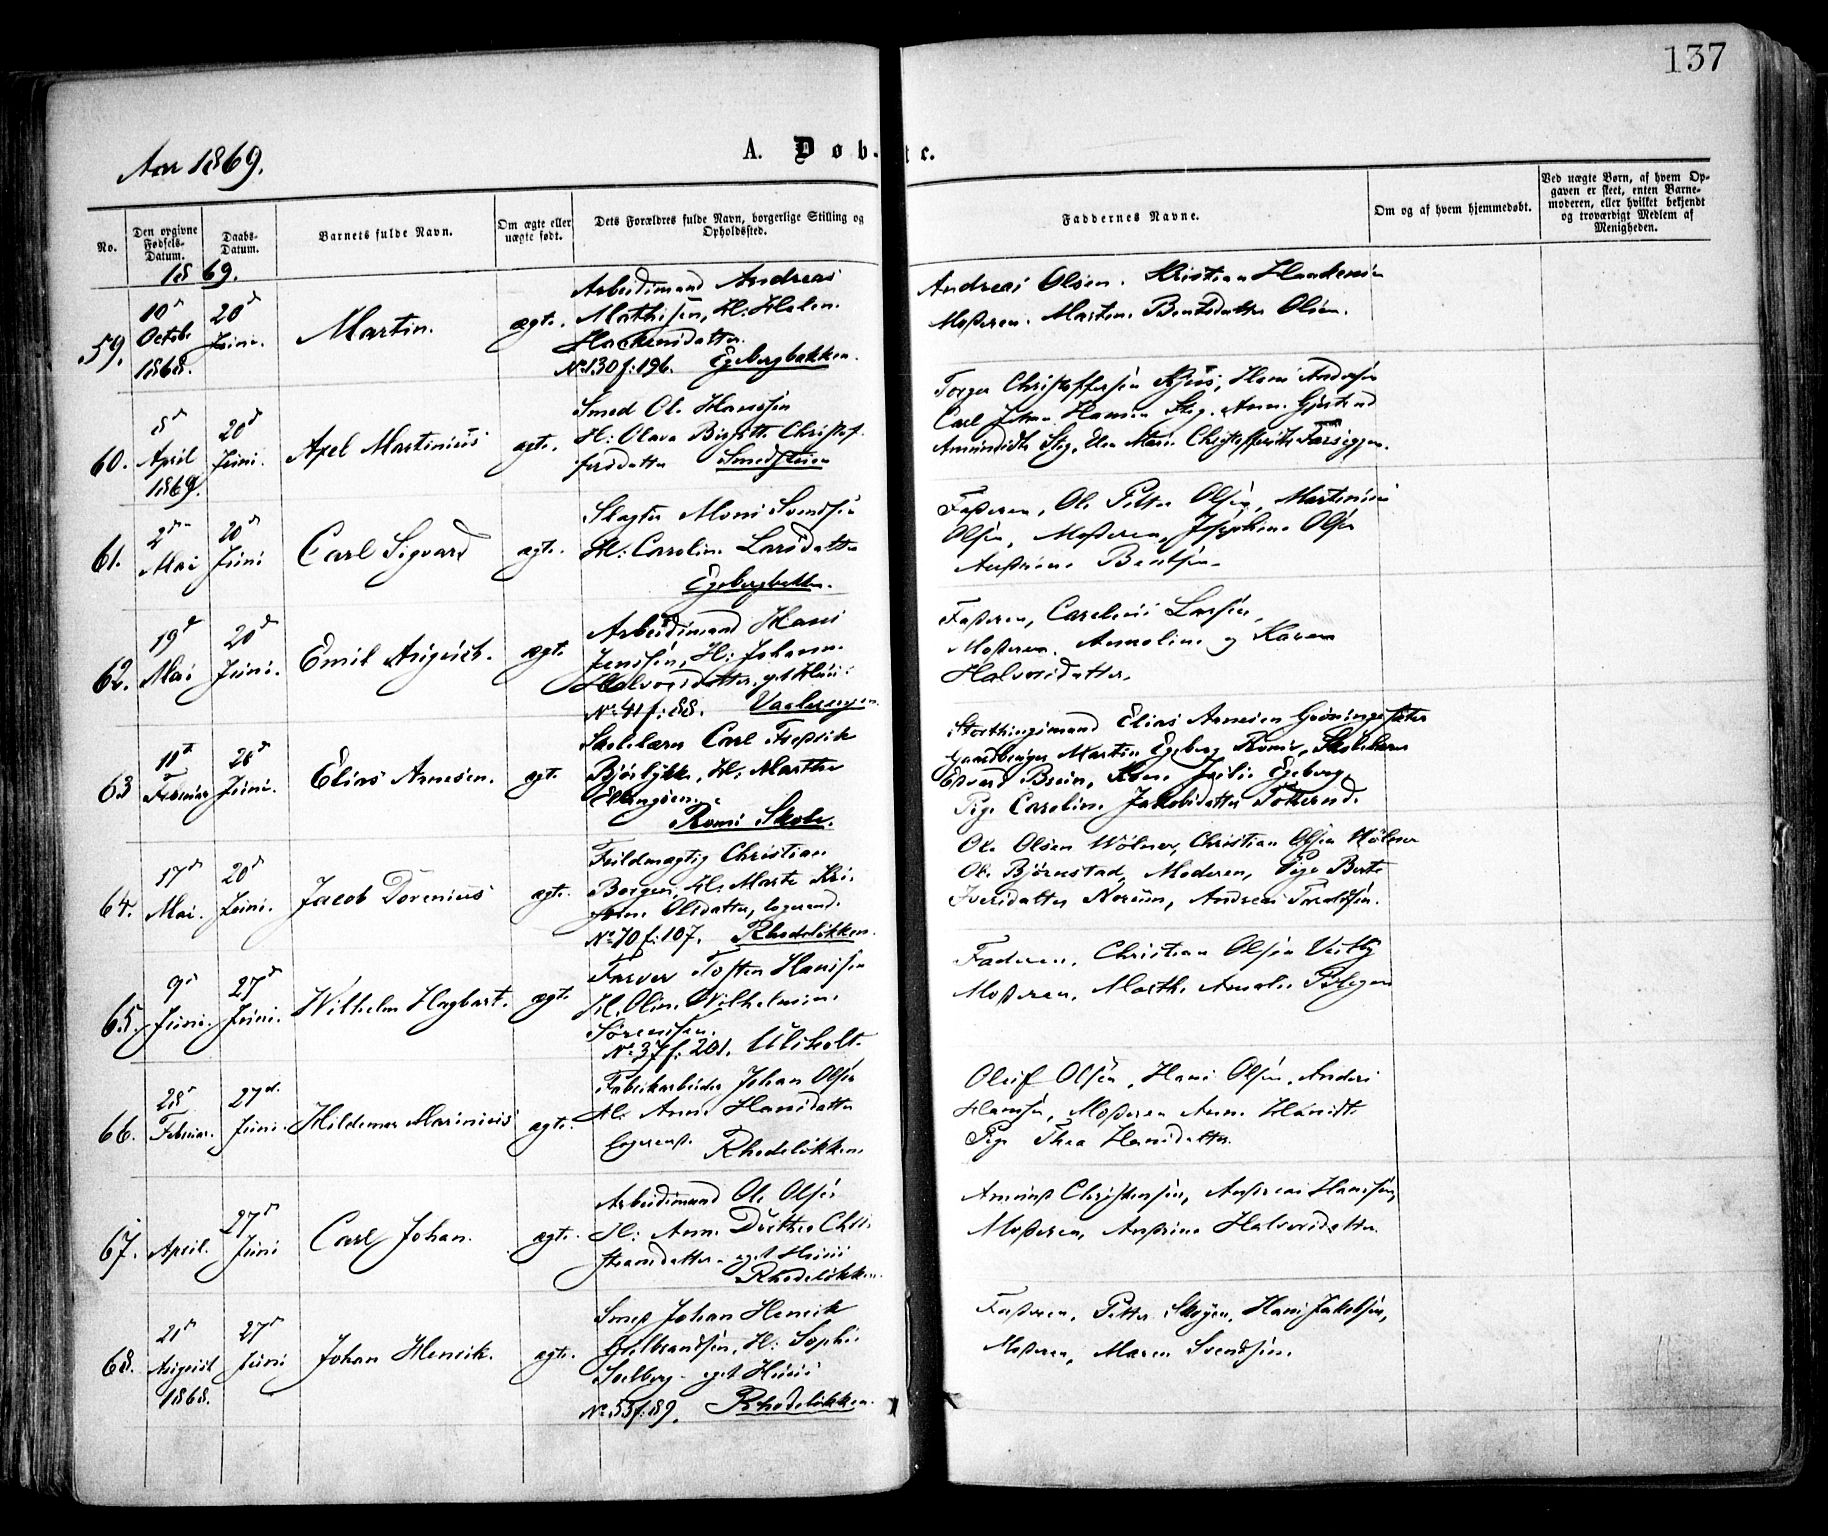 137
Aar 1869.
A. Døb te.
No.
Den opgivne Fødsels-Datum.
Daabs-Datum.
Barnets fulde Navn.
Om ægte eller uægte født.
Dets Forældres fulde Navn, borgerlige Stilling og Opholdssted.
Faddernes Navne.
Om og af hvem hjemmedøbt.
Ved uægte Børn, af hvem Opgaven er skeet, enten Barnemoderen, eller hvilket bekjendt og troværdigt Medlem af Menigheden.
1869.
59.
10d Octobr 1868.
20d Juni.
Martin.
ægte.
Arbeidsmand Andreas
Mathisen, H: Helen
Haakensdatter.
No 130 f: 196. Egebergbakken.
Andreas Olsen. Kristian Haakensen
Moderen. Marten Berntsdatter Olsen.
60.
8d April 1869.
20d Juni.
Axel Martinius
ægte.
Smed Ole Hanssen
H: Olava Birgitte Christof-
fersdatter
Torger Christoffersen, Hans Andersen
Carl Johan Hansen
61.
2den Mai
20d Juni
Carl Sigvard
ægte.
Slagter Mons Svendsen
H: Caroline Larsdatter
Egebergbakken.
Faderen, Ole Petter Olsen, Martinius
Olsen, Moderen, Josephine Olsen
Berntsen.
62.
19d Mai
20d Juni.
Emil August.
ægte.
Arbeidsmand Hans
Jenssen, H: Johanne
Halvorsdatter, eget Huus:
No 41 f: 88. Vaalerengen
Faderen, Carelius Larsen,
Moderen. Annoline og Karen
Halvorsdatter.
63
11d Februar
20d Juni.
Elias Arnesen.
ægte
Skolelærer Carl Fredrik
Bjørlykke, H: Marthe
Ellingsen.
Roms Skole.
Storthingsmand Elias Arnesen Grøningsæter
Gaardbruger Martin Egeberg Roms, Skolelærer
Edvard Bruun, Kone Julie Egeberg,
Pige Caroline Jakobsdatter
64.
17d Mai.
20d Juni.
Jacob Torenius
ægte.
Fuldmægtig Christian
Borgen, H: Marte Kri-
stine Olsdatter, logerend.
No 70 f: 107. Rhodeløkken.
Ole Olsen Wølner, Christian Olsen Wølner
Ole Bjørnstad, Moderen, Pige Berte
Iversdatter Noruum, Andreas Toraldsen.
65.
9d Juni.
27d Juni.
Wilhelm Hagbart.
ægte.
Farver Tosten Hanssen
H. Oline Wilhelmine
Sørenssen.
No 37 f: 201. Ulsholt.
Faderen, Christian Olsen
Moderen, Marthe Amalie
66.
28d Februar.
27d. Juni.
Hildemar Marinius
ægte.
Fabrikarbeider Johan Olsen
H: Anne Hansdatter
logerend. Rhodeløkken
Oluf Olsen, Hans Olsen, Anders
Hansen, Moderen Anne Hansdt.
Pige Thea Hansdatter.
67.
April.
27d Juni
Carl Johan.
ægte.
Arbeidsmand Ole Olsen
H: Anne Dorthea Chri-
stiansdatter. eget Huus
Rhodeløkken.
Amund Christensen, Andreas Hanssen,
Moderen, Andrine Halvorsdatter.
68.
21d August 1868.
27d Juni
Johan Henrik.
ægte.
Smed Johan Henrik
Gulbrandsen, H: Sophie
Solberg - eget Huus
No 55 f: 89. Rhodeløkken.
Faderen, Petter Skøyen, Hans Jakobsen,
Moderen, Maren Svendsen.